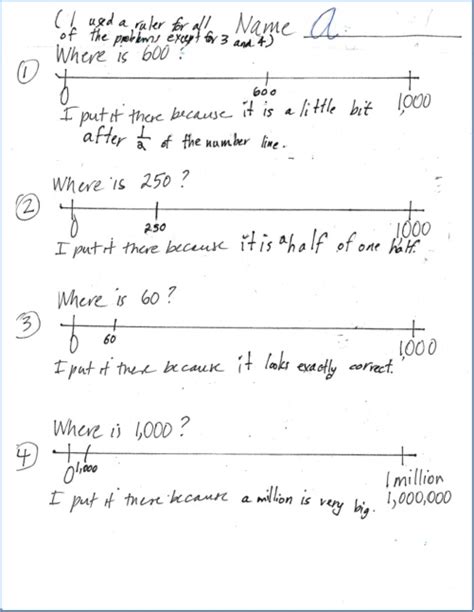 (I used a ruler for all Name a
of the problems except for 3 and 4)
Where is 600?
①
0 600 1,000
I put it there because it is a little bit
after 1/2 of the number line.
Where is 250?
②
0 250 1000
I put it there because it is a half of one half.
Where is 60?
③
0 60 1,000
I put it there because it looks exactly correct.
Where is 1,000?
④
0 1,000 1 million
1,000,000
I put it there because a million is very big.